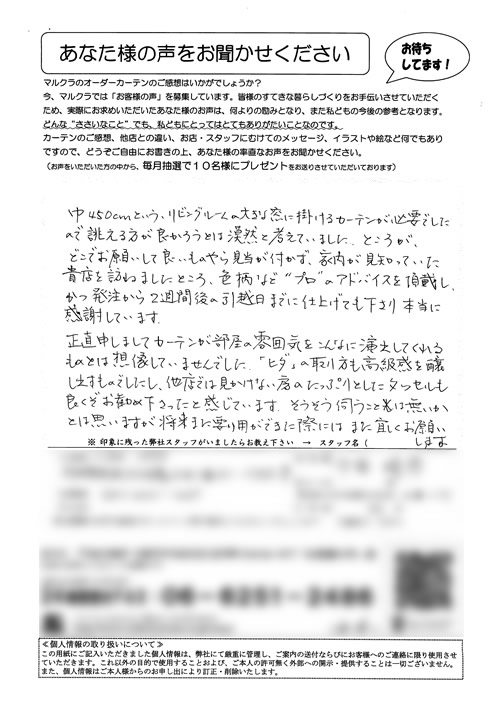 あなた様の声をお聞かせください
お待ち
してます！
マルクラのオーダーカーテンのご感想はいかがでしょうか？
今、マルクラでは「お客様の声」を募集しています。皆様のすてきな暮らしづくりをお手伝いさせていただく
ため、実際にお求めいただいたあなた様のお声は、何よりの励みとなり、また私どもの今後の参考となります。
どんな“ささいなこと”でも、私どもにとってはとてもありがたいことなのです。
カーテンのご感想、他店との違い、お店・スタッフにむけてのメッセージ、イラストや絵など何でもあり
ですので、どうぞご自由にお書きの上、あなた様の率直なお声をお聞かせください。
（お声をいただいた方の中から、毎月抽選で１０名様にプレゼントをお送りさせていただいております）
巾450cmという、リビングルームの大きな窓に掛けるカーテンが必要でした
ので誂える方が良かろうとは漠然と考えていました。ところが、
どこでお願いして良いものやら見当が付かず、家内が見知っていた
貴店を訪ねましたところ、色柄など“プロ”のアドバイスを頂戴し、
かつ発注から2週間後の引越日までに仕上げても下さり本当に
感謝しています。
正直申しましてカーテンが部屋の雰囲気をこんなに演出してくれる
ものとは想像していませんでした。「ヒダ」の取り方も高級感を醸
し出すものでしたし、他店では見かけない房のたっぷりとしたタッセルも
良くぞお勧め下さったと感じています。そうそう伺うことは無いか
とは思いますが将来また要り用ができた際には また宜しくお願い
します
※ 印象に残った弊社スタッフがいましたらお教え下さい → スタッフ名（
≪個人情報の取り扱いについて≫
この用紙にご記入いただきました個人情報は、弊社にて厳重に管理し、ご案内の送付ならびにお客様へのご連絡に限り使用させ
ていただきます。これ以外の目的で使用することおよび、ご本人の許可無く外部への開示・提供することは一切ございません。
また、個人情報はご本人様からのお申し出により訂正・削除いたします。